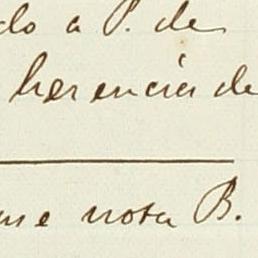 do a P. de
herencia de
me nota B.